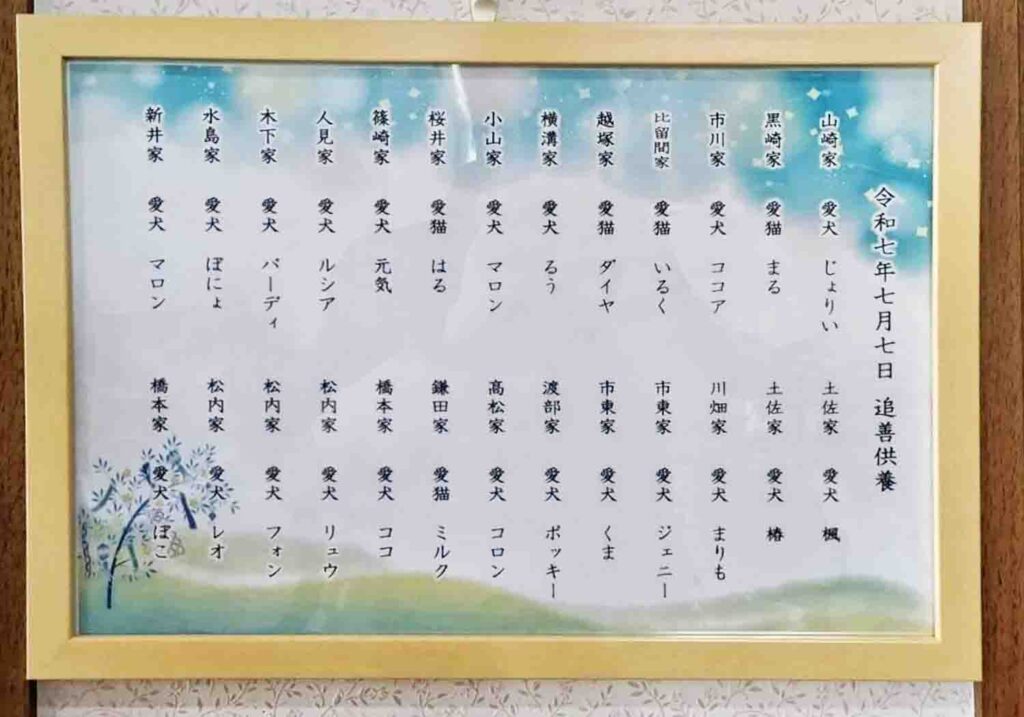 令和七年七月七日 追善供養
山崎家 愛犬 じょりい
黒崎家 愛猫 まる
市川家 愛犬 ココア
比留間家 愛猫 いるく
越塚家 愛猫 ダイヤ
横溝家 愛犬 るう
小山家 愛犬 マロン
桜井家 愛猫 はる
篠崎家 愛犬 元気
人見家 愛犬 ルシア
木下家 愛犬 バーディ
水島家 愛犬 ぽにょ
新井家 愛犬 マロン
土佐家 愛犬 楓
土佐家 愛犬 椿
川畑家 愛犬 まりも
市東家 愛犬 ジェニー
市東家 愛犬 くま
渡部家 愛犬 ポッキー
高松家 愛犬 コロン
鎌田家 愛猫 ミルク
橋本家 愛犬 ココ
松内家 愛犬 リュウ
松内家 愛犬 フォン
松内家 愛犬 レオ
橋本家 愛犬 ぽこ